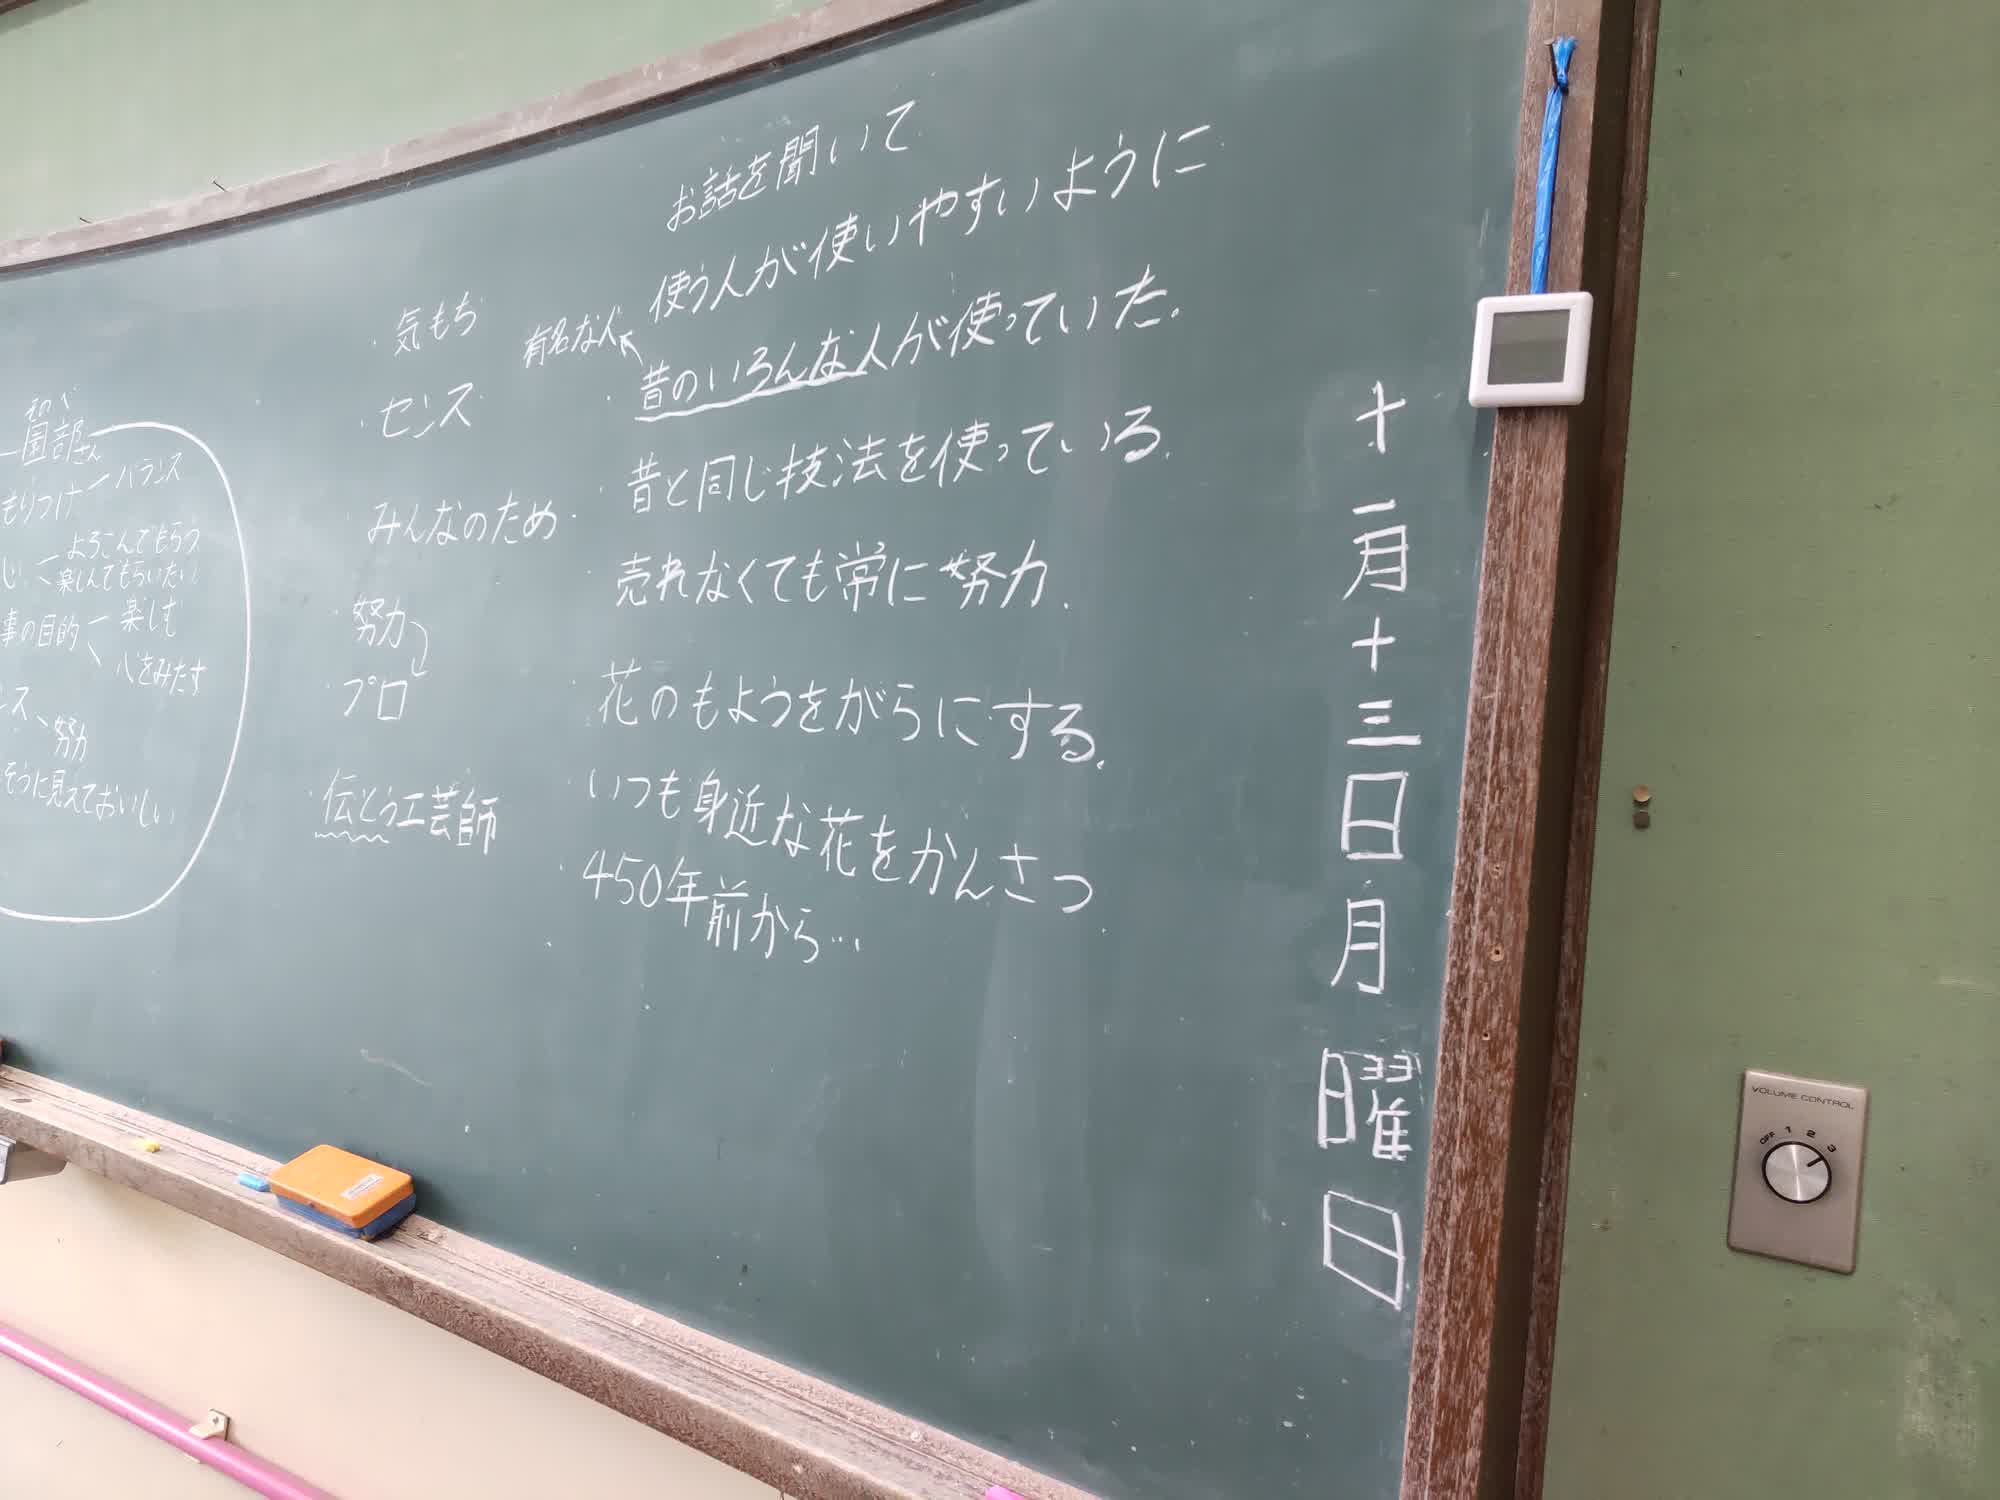 お話を聞いて
使う人が使いやすいように
・昔のいろんな人が使っていた。
有名な人
・昔と同じ技法を使っている。
・売れなくても常に努力.
・花のもようをがらにする.
・いつも身近な花をかんさつ
・450年前から…
・気もち
・センス
・みんなのため
・努力
・プロ
・伝とう工芸師
そのべ
園部さん
もりつけ
バランス
よろこんでもらう
楽しんでもらいたい
事の目的
楽しむ
心をみたす
努力
そうに見えておいしい
十一月十三日月曜日
VOLUME CONTROL
OFF 1 2 3